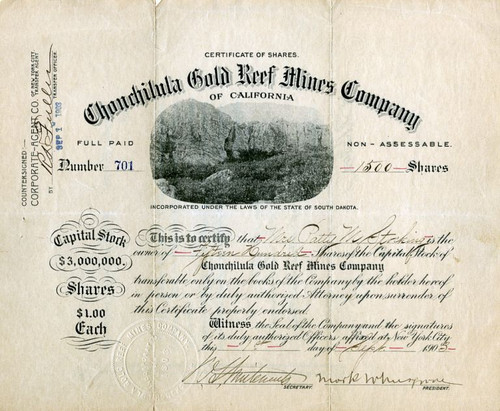 COUNTERSIGNED:
CORPORATE-AGENT CO. OF NEW YORK CITY
TRANSFER AGENT
BY
TRANSFER OFFICER
SEP 1 1903
CERTIFICATE OF SHARES.
Chonchilula Gold Reef Mines Company
OF CALIFORNIA
FULL PAID
NON-ASSESSABLE.
Number 701
1500 Shares
INCORPORATED UNDER THE LAWS OF THE STATE OF SOUTH DAKOTA.
Capital Stock
$3,000,000.
Shares
$1.00
Each
This is to certify that Mrs Patty is the
owner of Fifteen Hundred Shares of the Capital Stock of
Chonchilula Gold Reef Mines Company
transferable only on the books of the Company by the holder hereof
in person or by duly authorized Attorney upon surrender of
this Certificate properly endorsed.
Witness the Seal of the Company and the signatures
of its duly authorized Officers affixed at New York City
this day of Sept. 1903
SECRETARY.
PRESIDENT.